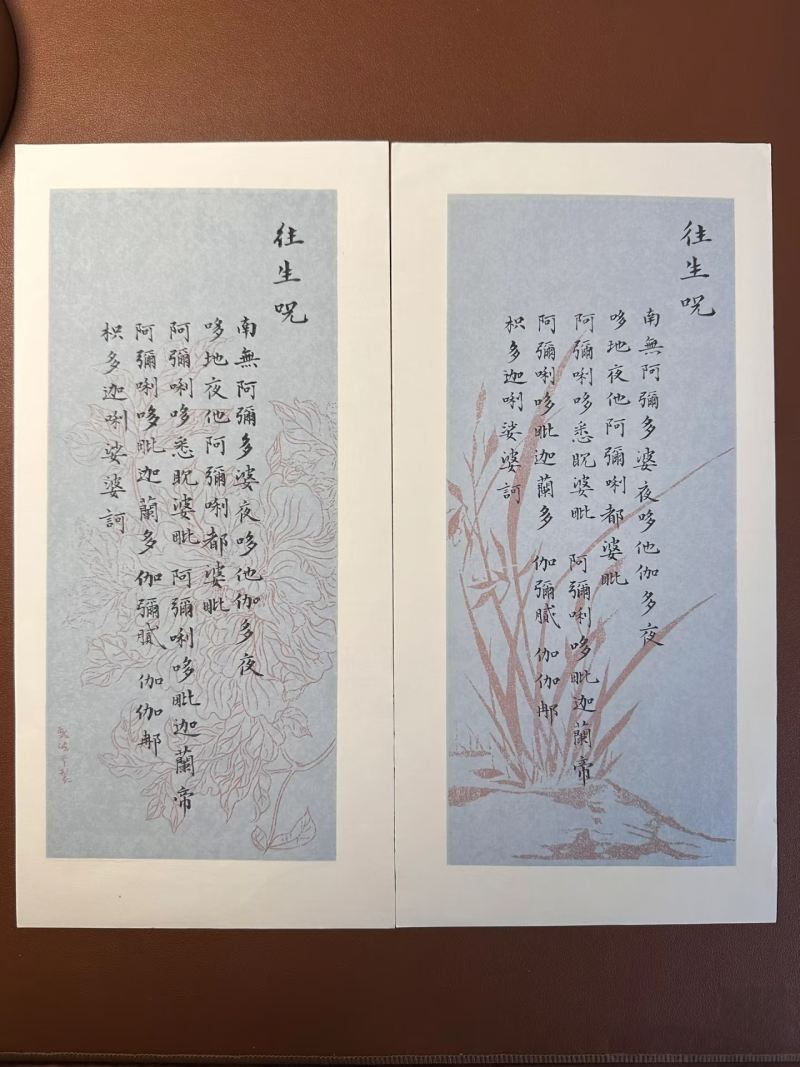 往生咒
南無阿彌多婆夜哆他伽多夜
哆地夜他阿彌唎都婆毗
阿彌唎哆悉眈婆毗 阿彌唎哆毗迦蘭帝
阿彌唎哆毗迦蘭多 伽彌膩 伽伽那
枳多迦唎娑婆訶
往生咒
南無阿彌多婆夜哆他伽多夜
哆地夜他阿彌唎都婆毗
阿彌唎哆悉眈婆毗 阿彌唎哆毗迦蘭帝
阿彌唎哆毗迦蘭多 伽彌膩 伽伽那
枳多迦唎娑婆訶